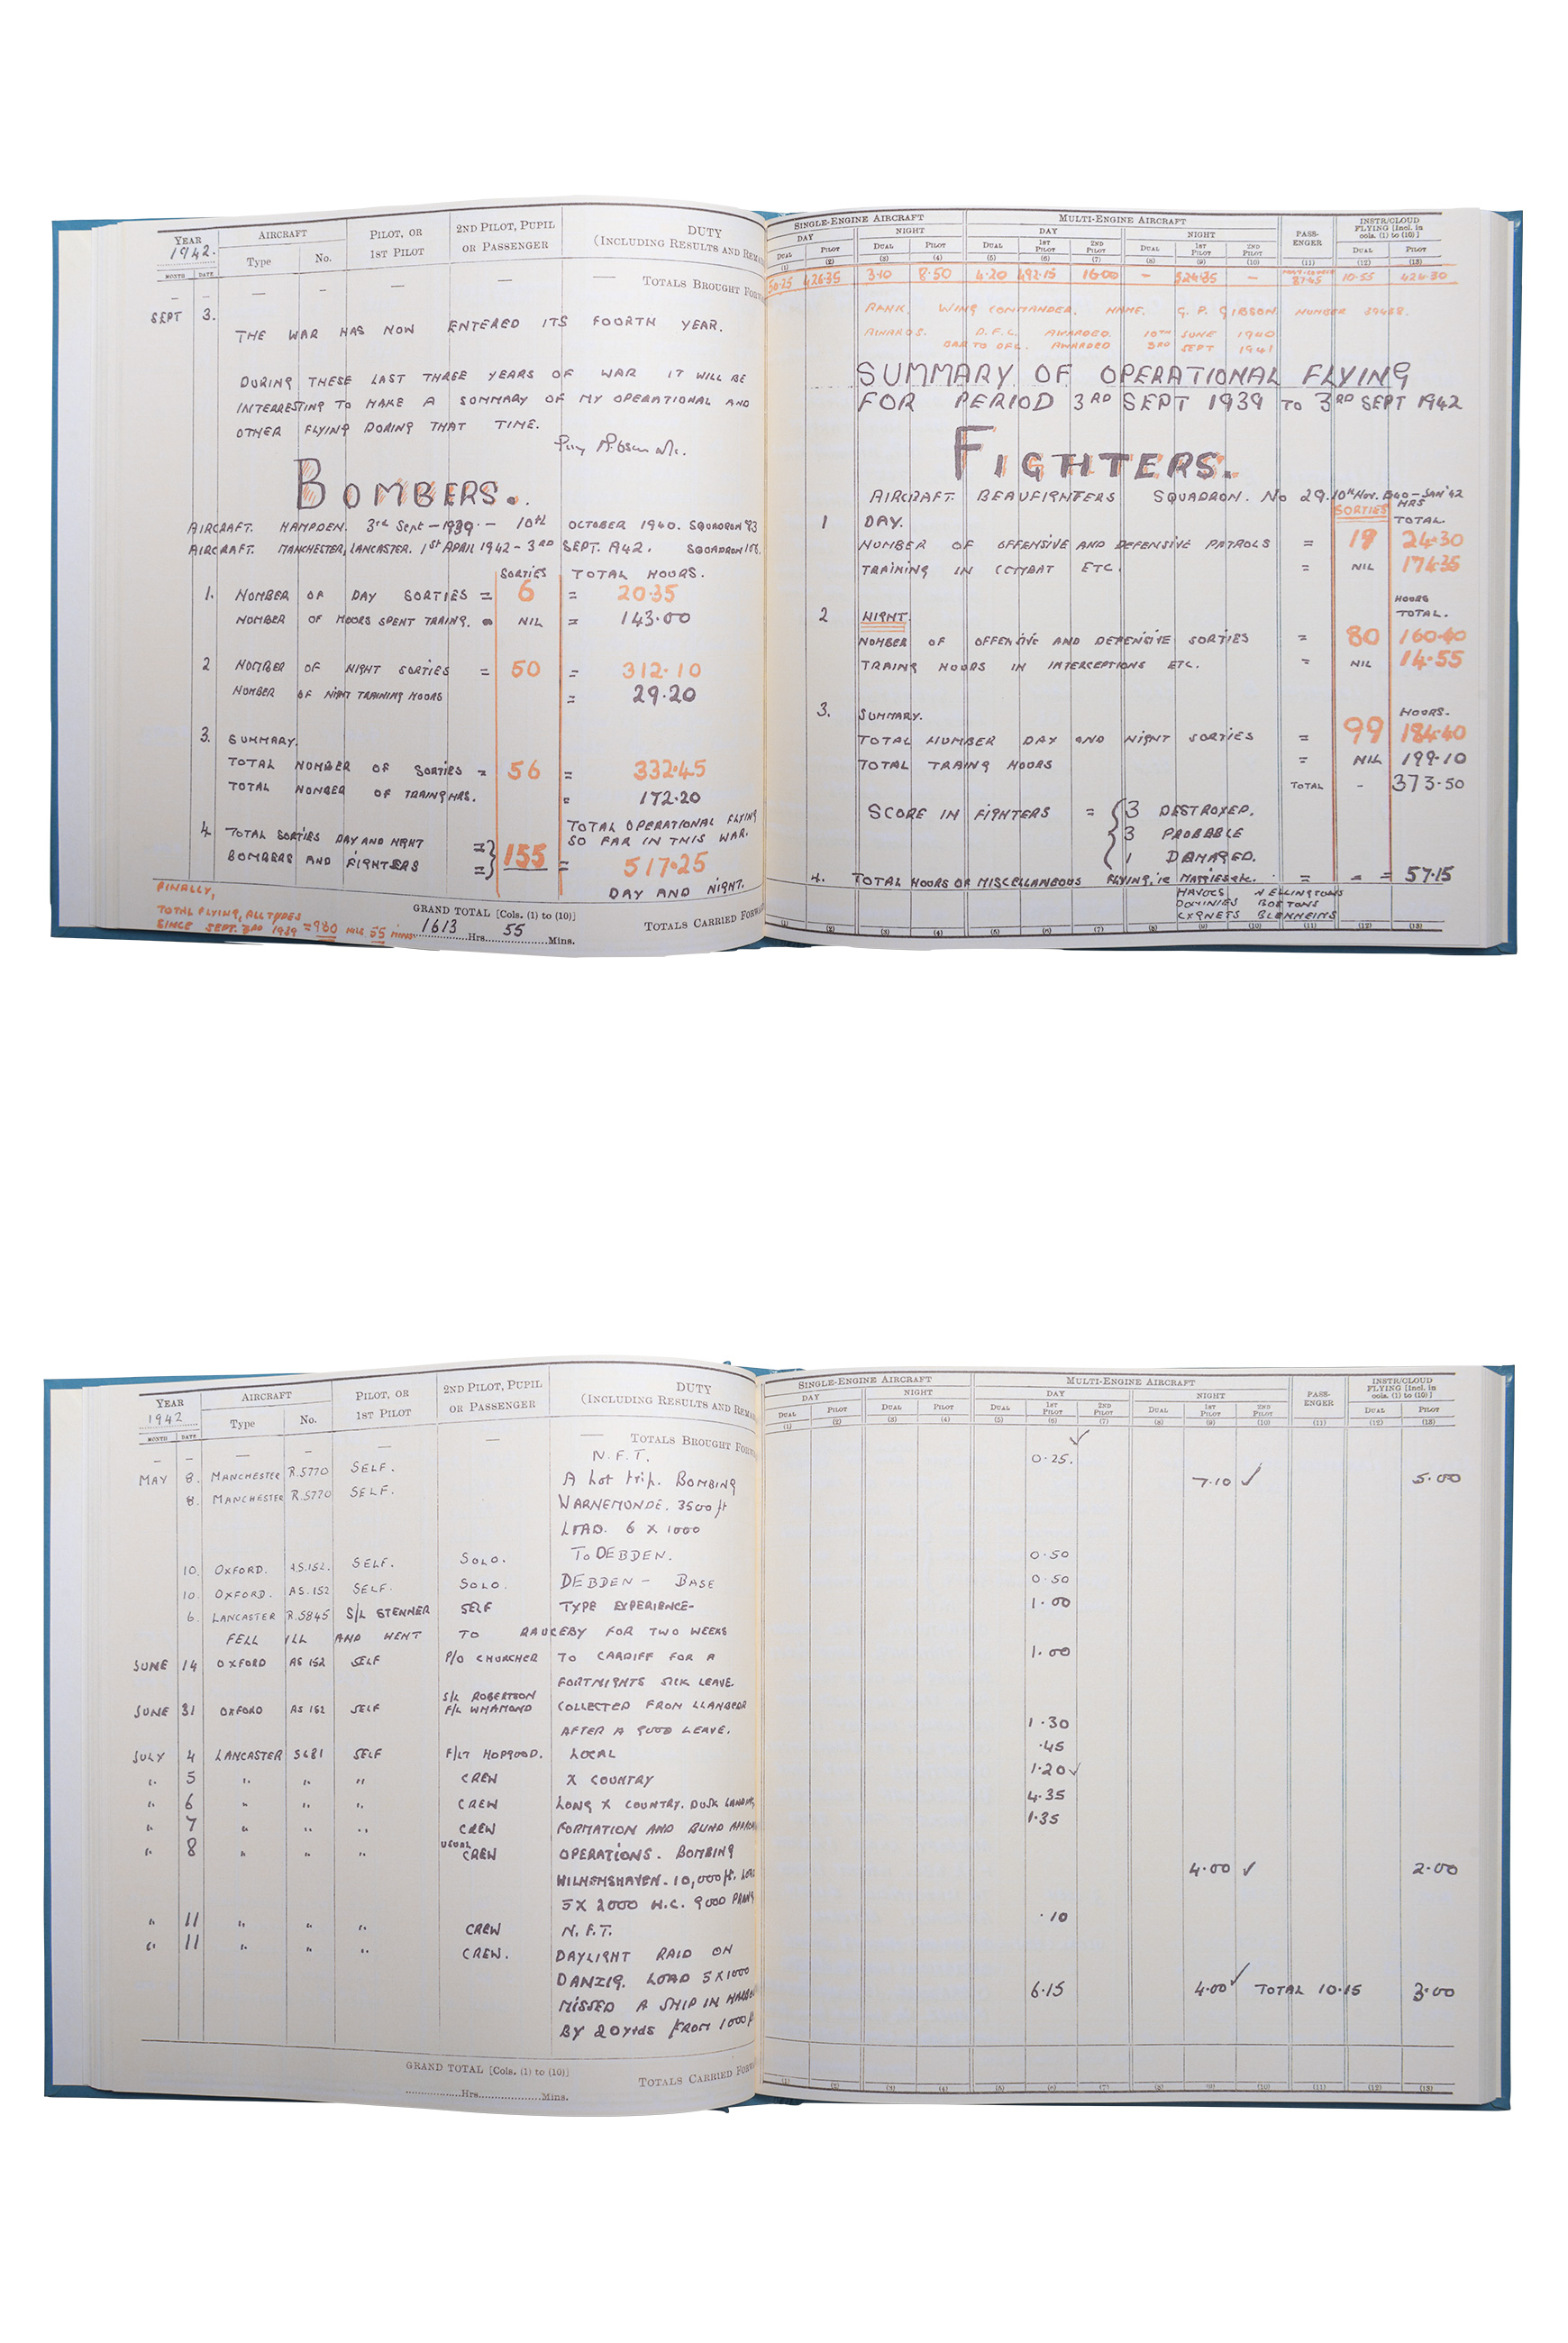 YEAR AIRCRAFT PILOT, OR 2ND PILOT, PUPIL DUTY
1942. Type No. 1ST PILOT OR PASSENGER (INCLUDING RESULTS AND REMA
MONTH DATE
— — — — — — — TOTALS BROUGHT FORWA
SEPT 3.
THE WAR HAS NOW ENTERED ITS FOURTH YEAR.
DURING THESE LAST THREE YEARS OF WAR IT WILL BE
INTERRESTING TO MAKE A SUMMARY OF MY OPERATIONAL AND
OTHER FLYING DURING THAT TIME.
BOMBERS.
AIRCRAFT. HAMPDEN. 3rd Sept – 1939 – 10th OCTOBER 1940. SQUADRON 83
AIRCRAFT. MANCHESTER, LANCASTER. 1ST APRIL 1942 – 3RD SEPT. 1942. SQUADRON 106.
SORTIES TOTAL HOURS.
1. NUMBER OF DAY SORTIES = 6 = 20.35
NUMBER OF HOURS SPENT TRAING. = NIL = 143.00
2 NUMBER OF NIGHT SORTIES = 50 = 312.10
NUMBER OF NIGHT TRAINING HOURS = 29.20
3. SUMMARY.
TOTAL NUMBER OF SORTIES = 56 = 332.45
TOTAL NUMBER OF TRAING HRS. = 172.20
TOTAL OPERATIONAL FLYING
SO FAR IN THIS WAR.
4. TOTAL SORTIES DAY AND NIGHT
BOMBERS AND FIGHTERS = 155 = 517.25
DAY AND NIGHT.
FINALLY,
TOTAL FLYING, ALL TYPES
SINCE SEPT. 3RD 1939 = 980 HRS 55 MINS
GRAND TOTAL [Cols. (1) to (10)]
1613 Hrs. 55 Mins.
TOTALS CARRIED FORWA
SINGLE-ENGINE AIRCRAFT MULTI-ENGINE AIRCRAFT PASS-ENGER INSTR/CLOUD FLYING [Incl. in cols. (1) to (10)]
DAY NIGHT DAY NIGHT
DUAL PILOT DUAL PILOT DUAL 1ST PILOT 2ND PILOT DUAL 1ST PILOT 2ND PILOT DUAL PILOT
(1) (2) (3) (4) (5) (6) (7) (8) (9) (10) (11) (12) (13)
50.25 426.35 3.10 8.50 4.20 492.15 16.00 – 524.35 – 87.45 10.55 424.30
RANK. WING COMMANDER. NAME. G. P. GIBSON NUMBER 39438.
AWARDS. D.F.C. AWARDED. 10TH JUNE 1940
BAR TO DFC. AWARDED 3RD SEPT 1941
SUMMARY OF OPERATIONAL FLYING
FOR PERIOD 3RD SEPT 1939 TO 3RD SEPT 1942
FIGHTERS.
AIRCRAFT. BEAUFIGHTERS SQUADRON. No 29. 10th Nov. 1940 – JAN '42
SORTIES HRS TOTAL.
1 DAY.
NUMBER OF OFFENSIVE AND DEFENSIVE PATROLS = 19 24.30
TRAINING IN COMBAT ETC. = NIL 174.35
HOURS
TOTAL.
2 NIGHT.
NUMBER OF OFFENSIVE AND DEFENSIVE SORTIES = 80 160.40
TRAING HOURS IN INTERCEPTIONS ETC. = NIL 14.55
3. SUMMARY. HOURS.
TOTAL NUMBER DAY AND NIGHT SORTIES = 99 184.40
TOTAL TRAING HOURS = NIL 199.10
TOTAL - 373.50
SCORE IN FIGHTERS = 3 DESTROYED.
3 PROBABLE
1 DAMAGED.
4. TOTAL HOURS OF MISCELLANEOUS FLYING, ie MAGGIES etc. = = = 57.15
HAVOCS WELLINGTONS
DOMINIES BOSTONS
CYGNETS BLENHEIMS
(1) (2) (3) (4) (5) (6) (7) (8) (9) (10) (11) (12) (13)
YEAR AIRCRAFT PILOT, OR 2ND PILOT, PUPIL DUTY
1942 Type No. 1ST PILOT OR PASSENGER (INCLUDING RESULTS AND REMA
MONTH DATE
— — — — — — TOTALS BROUGHT FORW
MAY 8. MANCHESTER R.5770 SELF. N.F.T.
8. MANCHESTER R.5770 SELF. A hot trip. BOMBING
WARNEMUNDE. 3500 ft
LOAD. 6 X 1000
10. OXFORD. AS.152. SELF. SOLO. TO DEBDEN.
10. OXFORD. AS.152 SELF. SOLO. DEBDEN – BASE
6. LANCASTER R.5845 S/L STENNER SELF TYPE EXPERIENCE-
FELL ILL AND WENT TO RAUCEBY FOR TWO WEEKS
JUNE 14 OXFORD AS 152 SELF P/O CHURCHER TO CARDIFF FOR A
FORTNIGHTS SICK LEAVE.
JUNE 31 OXFORD AS 152 SELF S/L ROBERTSON F/L WHAMOND COLLECTED FROM LLANBEDR
AFTER A GOOD LEAVE.
JULY 4 LANCASTER 5681 SELF F/LT HOPGOOD. LOCAL
" 5 " " " CREW X COUNTRY
" 6 " " " CREW LONG X COUNTRY. DUSK LANDING
" 7 " " " CREW FORMATION AND BLIND APPROA
" 8 " " " USUAL CREW OPERATIONS. BOMBING
WILHEMSHAVEN. 10,000 ft. LOAD
5 X 2000 H.C. 9000 PRANG
" 11 " " " CREW N.F.T.
" 11 " " " CREW. DAYLIGHT RAID ON
DANZIG. LOAD 5X1000
MISSED A SHIP IN HARBO
BY 20 yrds FROM 1000 f
GRAND TOTAL [Cols. (1) to (10)]
Hrs. Mins.
TOTALS CARRIED FORWA
SINGLE-ENGINE AIRCRAFT MULTI-ENGINE AIRCRAFT PASS-ENGER INSTR/CLOUD FLYING [Incl. in cols. (1) to (10)]
DAY NIGHT DAY NIGHT
DUAL PILOT DUAL PILOT DUAL 1ST PILOT 2ND PILOT DUAL 1ST PILOT 2ND PILOT DUAL PILOT
(1) (2) (3) (4) (5) (6) (7) (8) (9) (10) (11) (12) (13)
0.25.
7.10 ✓ 5.00
0.50
0.50
1.00
1.00
1.30
.45
1.20 ✓
4.35
1.35
4.00 ✓ 2.00
.10
6.15 4.00 ✓ TOTAL 10.15 3.00
(1) (2) (3) (4) (5) (6) (7) (8) (9) (10) (11) (12) (13)